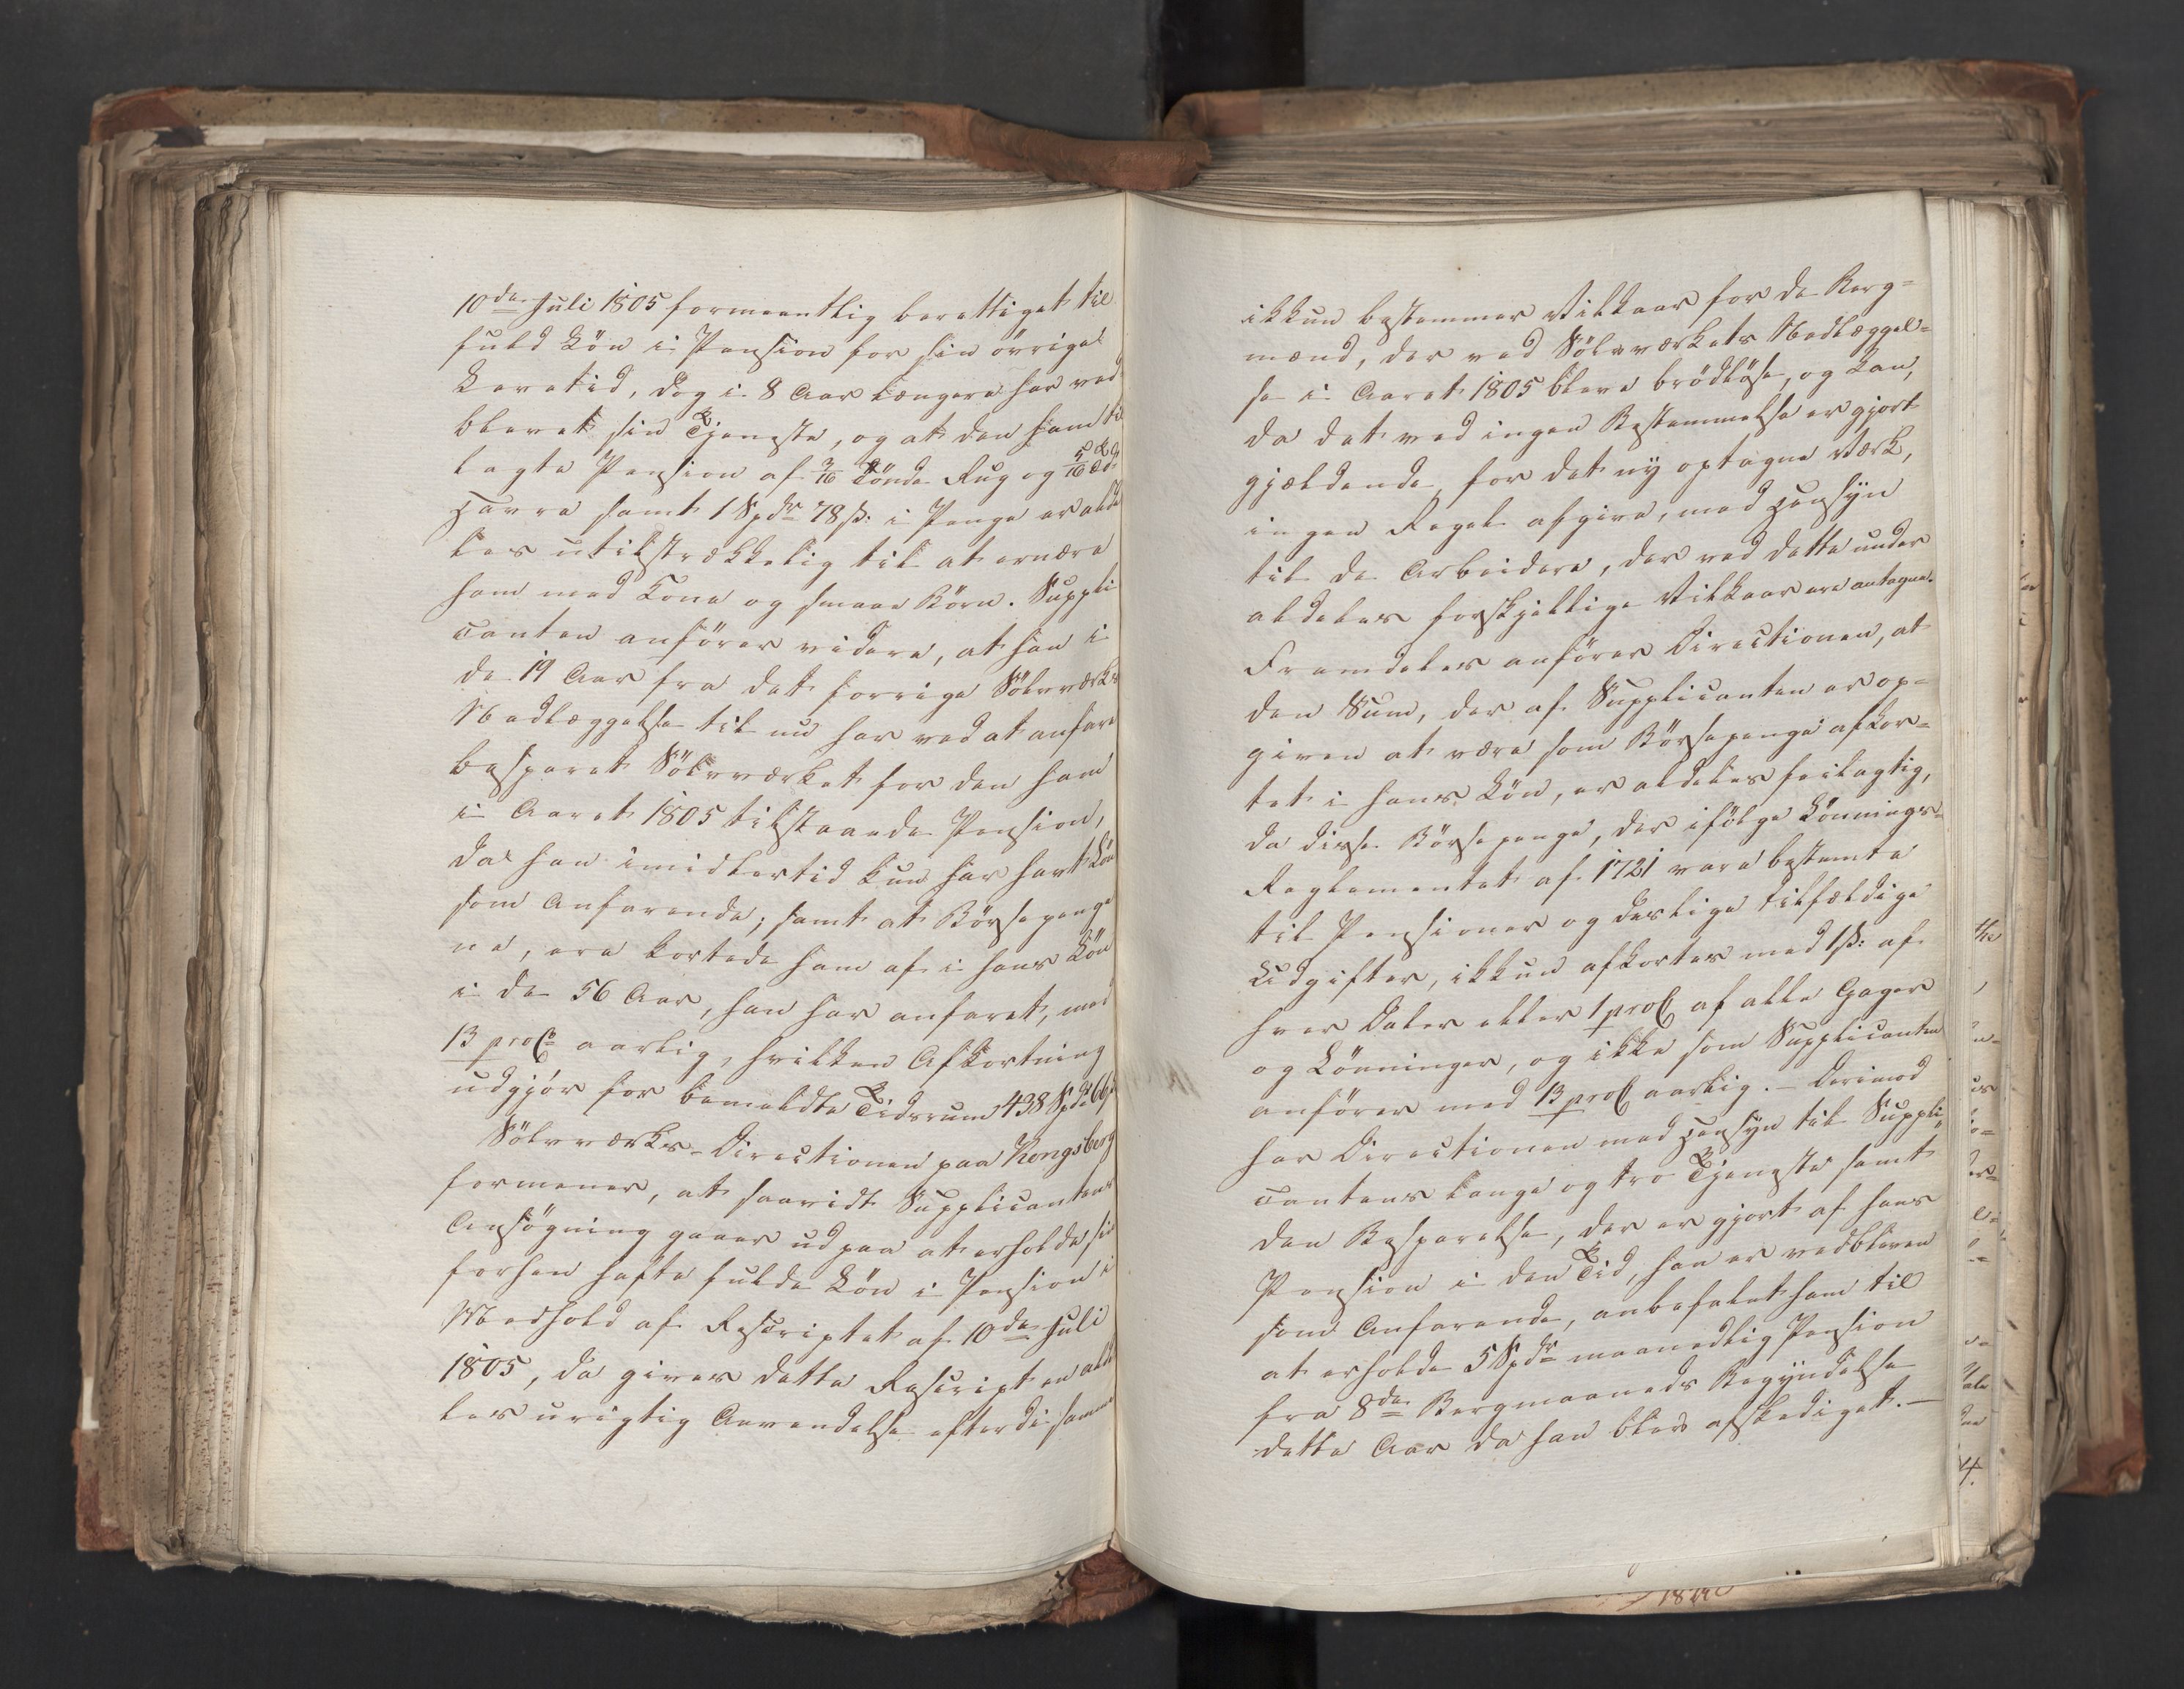 10de Juli 1805 formeentlig berettiget til
fuld Løn i Pension for sin övrige
Levetid, dog i 8 Aar længere har ved
blevet sin Tjeneste, og at den ham til
lagte Pension af 3/16 Tönde Rug og 5/16 Td
Havre samt 1 Spdr 78 ß. i Penge er alde
les utilstrækkelig til at ernære
ham med Kone og smaae Börn. Suppli
canten anförer videre, at han i
de 19 Aar fra det forrige Sölvværks
Nedlæggelse til nu har ved at anfare
besparet Sölvværket for den ham
i Aaret 1805 tilstaaede Pension,
da han imidlertid kun har havt Lön
som Anfarende; samt at Börsepenge
ne, ere kortede ham af i hans Lön
i de 56 Aar, han har anfaret, med
13 proCto aarlig, hvilken Afkortning
udgjör for bemeldte Tidsrum 438 Spd 66ß
Sölvværks-Directionen paa Kongsberg
formener, at saavidt Supplicantens
Ansögning gaaer ud paa at erholde sin
forhen hafte fulde Lön i Pension i
Medhold af Rescriptet af 10de Juli
1805, da gives dette Rescript en alde
les urigtig Anvendelse efterdi samme
ikkun bestemmer Vilkaar for de Berg=
mænd, der ved Sölvværkets Nedlæggel=
se i Aaret 1805 bleve brödlöse, og kan,
da det ved ingen Bestemmelse er gjort
gjældende for det ny optagne Værk,
ingen Regel afgive, med Hensyn
til de Arbeidere, der ved dette under
aldeles forskjellige Vilkaar ere antagne.
Fremdeles anförer Directionen, at
den Sum, der af Supplicanten er op=
given at være som Börsepenge afkor=
tet i hans Lön, er aldeles feilagtig,
da disse Börsepenge, der ifölge Lönnings=
Reglementet af 1721 vare bestemte
til Pensioner og deslige tilfældige
Udgifter, ikkun afkortes med 1 ß. af
hver Daler eller 1 proC af alle Gager
og Lönninger, og ikke som Supplicanten
anförer med 13 proC aarlig. – Derimod
har Directionen med Hensyn til Suppli
cantens lange og tro Tjeneste samt
den Besparelse, der er gjort af hans
Pension i den Tid, han er vedbleven
som Anfarende, anbefalet ham til
at erholde 5 Spdr maanedlig Pension
fra 8de Bergmaaneds Begyndelse
dette Aar da han blev afskediget. –